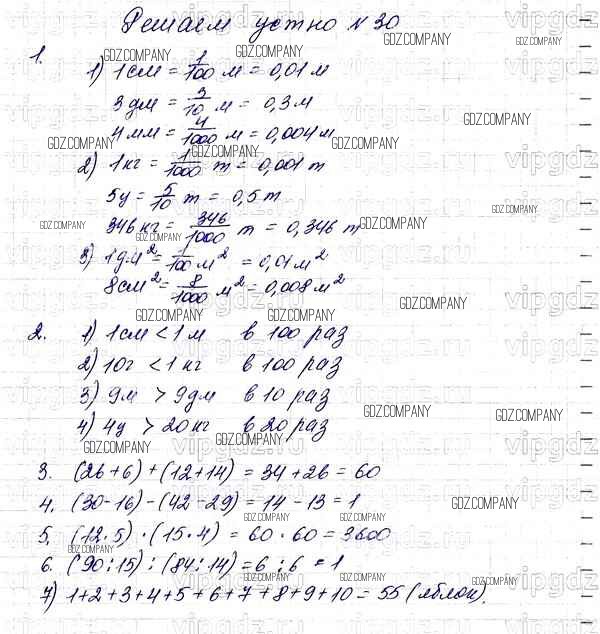 Решаем устно № 30
1.
1) 1 см = 1/100 м = 0,01 м
3 дм = 3/10 м = 0,3 м
4 мм = 4/1000 м = 0,004 м
2) 1 кг = 1/1000 т = 0,001 т
5 ц = 5/10 т = 0,5 т
346 кг = 346/1000 т = 0,346 т
3) 1 дм² = 1/100 м² = 0,01 м²
8 см² = 8/1000 м² = 0,008 м²
2. 1) 1 см < 1 м в 100 раз
2) 10 г < 1 кг в 100 раз
3) 9 м > 9 дм в 10 раз
4) 4 ц > 20 кг в 20 раз
3. (26 + 6) + (12 + 14) = 34 + 26 = 60
4. (30 - 16) - (42 - 29) = 14 - 13 = 1
5. (12 · 5) · (15 · 4) = 60 · 60 = 3600
6. (90 : 15) : (84 : 14) = 6 : 6 = 1
7) 1 + 2 + 3 + 4 + 5 + 6 + 7 + 8 + 9 + 10 = 55 (яблок).
GDZ.COMPANY
vipgdz.ru